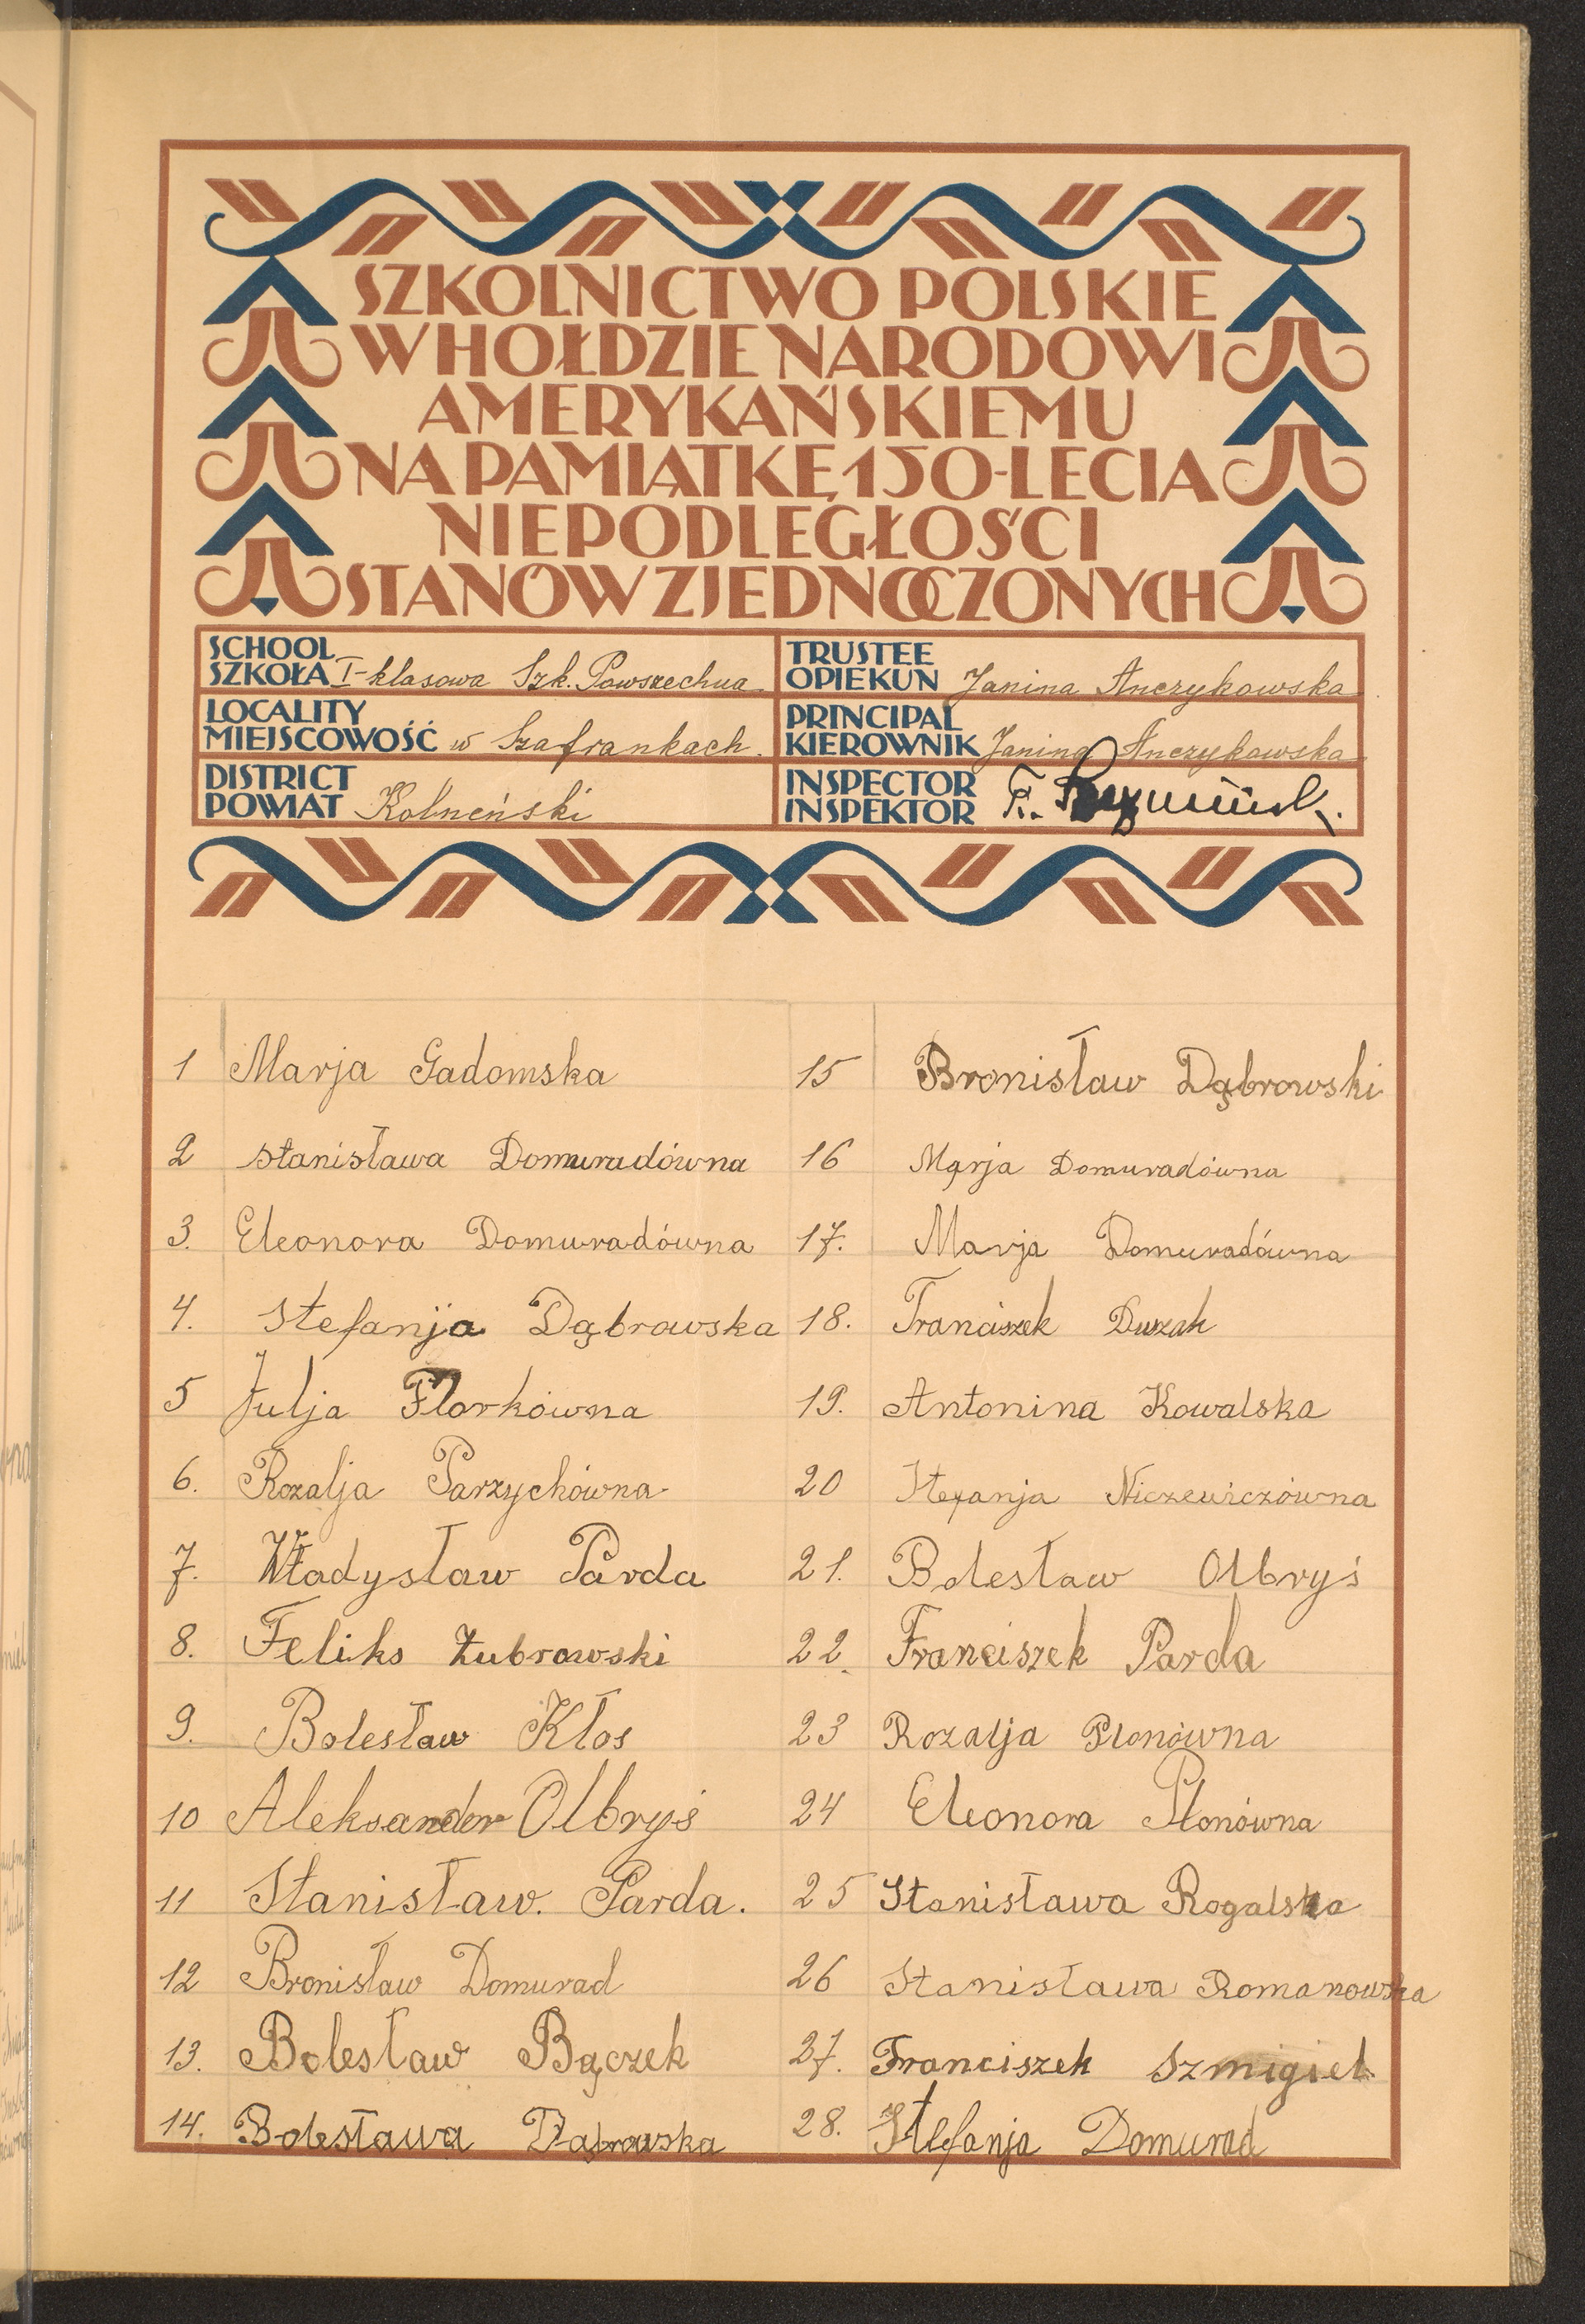 SZKOLNICTWO POLSKIE
W HOŁDZIE NARODOWI
AMERYKAŃSKIEMU
NA PAMIĄTKĘ 150-LECIA
NIEPODLEGŁOŚCI
STANÓW ZJEDNOCZONYCH
SCHOOL
SZKOŁA I-klasowa Szk. Powszechna
LOCALITY
MIEJSCOWOŚĆ w Szafrankach.
DISTRICT
POWIAT Kolneński
TRUSTEE
OPIEKUN Janina Anczykowska
PRINCIPAL
KIEROWNIK Janina Anczykowska
INSPECTOR
INSPEKTOR
1 Marja Gadomska
2 Stanisława Domuradówna
3. Eleonora Domuradówna
4. Stefanja Dąbrowska
5 Julja Florkówna
6. Rozalja Parzychówna
7. Władysław Parda
8. Feliks Żubrowski
9. Bolesław Kłos
10 Aleksander Olbryś
11 Stanisław. Parda.
12 Bronisław Domurad
13. Bolesław Bączek
14. Bolesława Dąbrowska
15 Bronisław Dąbrowski
16 Marja Domuradówna
17. Marja Domuradówna
18. Franciszek Duszak
19. Antonina Kowalska
20 Stefanja Niczewiczówna
21. Bolesław Olbryś
22. Franciszek Parda
23 Rozalja Płonówna
24 Eleonora Płonówna
25 Stanisława Rogalska
26 Stanisława Romanowska
27. Franciszek Szmigiel
28. Stefanja Domurad